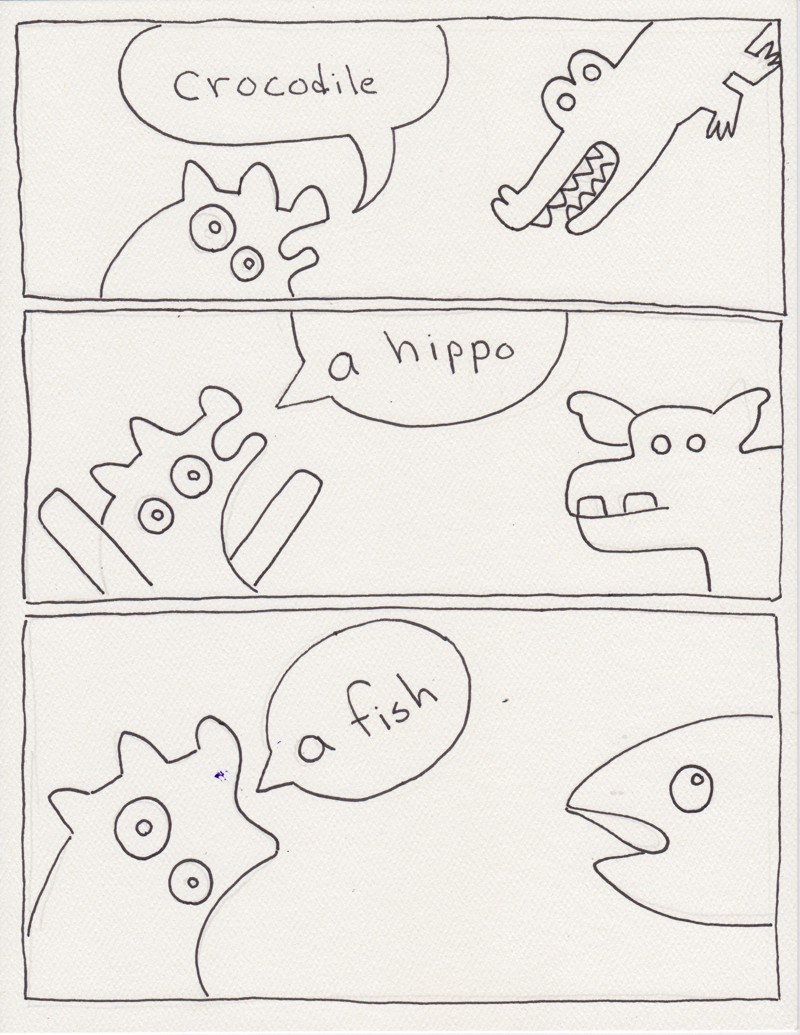 Crocodile
a hippo
a fish